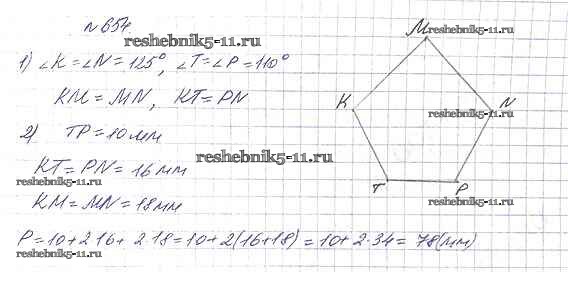 №654
reshebnik5-11.ru
1) ∠K = ∠N = 125°, ∠T = ∠P = 110°
KM = MN, KT = PN
2) TP = 10 мм
reshebnik5-11.ru
KT = PN = 16 мм
reshebnik5-11.ru
KM = MN = 18 мм
P = 10 + 2·16 + 2·18 = 10 + 2(16+18) = 10 + 2·34 = 78 (мм)
reshebnik5-11.ru
M
K
N
reshebnik5-11.ru
T
P
reshebnik5-11.ru
reshebnik5-11.ru